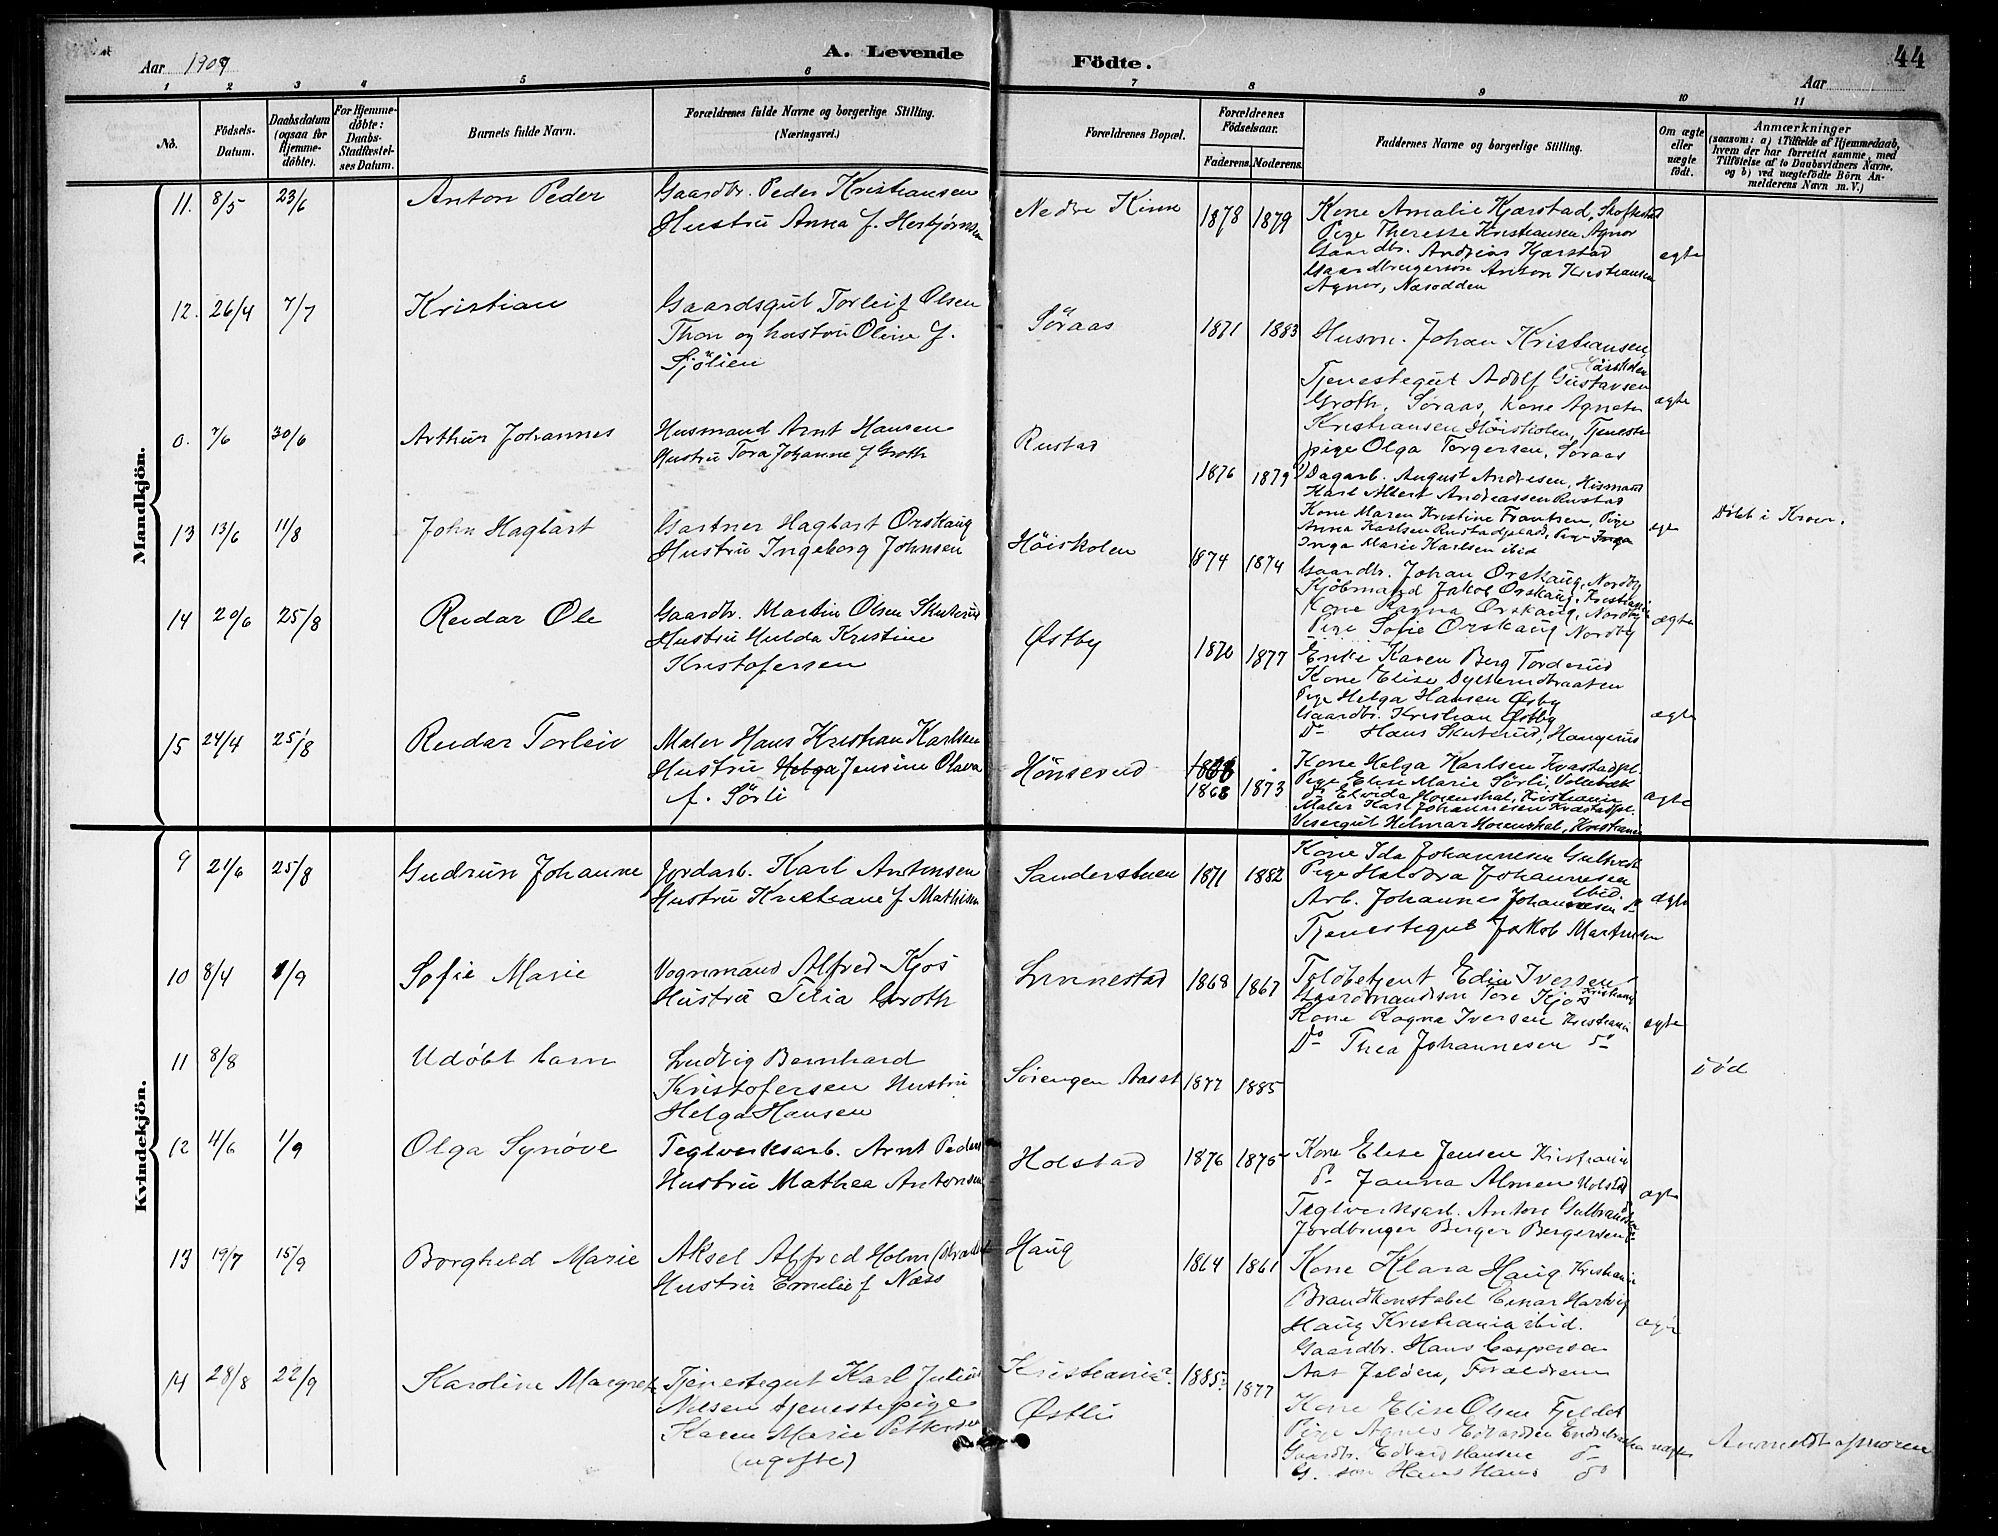 A. Levende Födte.
44
Aar 1909
Aar
1 2 3 4 5 6 7 8 9 10 11
No.
Födsels-Datum.
Daabsdatum (ogsaa for Hjemme-döbte).
For Hjemme-döbte: Daabs-Stadfæstel-ses Datum.
Barnets fulde Navn.
Forældrenes fulde Navne og borgerlige Stilling. (Næringsvei.)
Forældrenes Bopæl.
Forældrenes Födselsaar.
Faderens. Moderens.
Faddernes Navne og borgerlige Stilling.
Om ægte eller uægte födt.
Anmærkninger
(saasom: a) i Tilfælde af Hjemmedaab, hvem der har forrettet samme, med Tilföielse af to Daabsvidners Navne, og b) ved uægtefödte Börn Anmelderens Navn m. V.)
Mandkjön.
11. 8/5 23/6 Anton Peder
Gaardbr. Peder Kristiansen
Hustru Anna f. Herbjørnsen
Nedre Kinn 1878 1879
Kone Amalie Kjærstad,
Pige Therese Kristiansen Agnor
Gaardbr. Andreas Kjærstad
Gaardbrugersøn Anton Kristiansen
Agnor, Næsodden
ægte
12. 26/4 7/7 Kristian
Gaardsgut Torleif Olsen
Thon og hustru Oline f.
Sjølien
Søraas 1871 1883
Husm. Johan Kristiansen
Høiskolen
Tjenestegut Adolf Gustavsen
Groth, Søraas, Kone Agnete
Kristiansen Høiskolen, Tjeneste
pige Olga Torgersen, Søraas
ægte
0. 7/6 30/6 Arthur Johannes
Husmand Arnt Hansen
Hustru Tora Johanne f Groth
Rustad 1876 1879
Dagarb. August Andresen, Husmand
Karl Albert Andreassen Rustad
Kone Maren Kristine Frantsen, Pige
Anna Karlsen Rustadplads, Pige Inga
Inga Marie Karlsen ibid
ægte
Døbt i Kroer.
13 13/6 11/8 John Hagbart
Gartner Hagbart Orskaug
Hustru Ingeborg Johnsen
Høiskolen 1874 1874
Gaardbr. Johan Orskaug, Nordby
Kjøbmand Jakob Orskaug, Kristiania
Kone Ragna Orskaug, Nordby
Pige Sofie Orskaug Nordby
ægte
14 20/6 25/8 Reidar Ole
Gaardbr. Martin Olsen Skuterud
Hustru Hulda Kristine
Kristofersen
Østby 1870 1877
Enke Karen Berg Torderud
Kone Elise Dysterudbraaten
Pige Helga Hansen Østby
Gaardbr. Kristian Østby
Do Hans Skuterud, Haugerud
ægte
15 24/4 25/8 Reidar Torleiv
Maler Hans Kristian Karlsen
Hustru Helga Jensine Olava
f. Sørli
Hønserud 1868
1868 1873
Kone Helga Karlsen Kvastadpl.
Pige Elise Marie Sørli, Vollebæk
do Elvida Horenshal, Kristiania
Maler Karl Johannesen Kvastadpl.
Visergut Helmar Horenshal, Kristiania
ægte
Kvindekjön.
9 21/6 25/8 Gudrun Johanne
Jordarb. Karl Antonsen
Hustru Kristiane f Mathisen
Sanderstuen 1871 1882
Kone Ida Johannesen
Pige Johannesen
ibid.
Arb. Johannes Johannesen do
Tjenestegut Jakob Martinsen
ægte
10 8/4 1/9 Sofie Marie
Vognmand Alfred Kjos
Hustru Tilia Groth
Linnestad 1868 1867
Toldbetjent Edin Iversen
Gaardmandssøn Tore Kjos Kristiania
Kone Ragna Iversen Kristiania
Do Thea Johannesen do
ægte
11 8/8 Udøbt barn
Ludvig Bernhard
Kristofersen Hustru
Helga Hansen
Sørengen Aas st 1877 1885
Død
12 4/6 1/9 Olga Synøve
Teglverksarb. Arnt Pedersen
Hustru Mathea Antonsen
Holstad 1876 1875
Kone Elise Jensen Kristiania
do Janna Almen Holstad
Teglverksarb. Anton Gulbrandsen
Jordbruger Berger Bergersen do
ægte
13 19/7 15/9 Borghild Marie
Aksel Alfred Holm
Hustru Emilie f Næss
Haug 1864 1861
Kone Klara Haug Kristiania
Brandkonstabel Einar Hartvig
Haug Kristiania ibid.
Gaardbr. Hans Caspersen
Aas Jeløen, Forældrene
ægte
14 28/8 22/9 Karoline Margrete
Tjenestegut Karl Julius
Nilsen tjenestepige
Karen Marie Pettersen
(ugifte)
Kristiania?
Østli
1885? 1877
Kone Elise Olsen Fjeldet
Pige Agnes Edvardsen
Gaardbr. Edvard Hansen do
G. søn Hans Hans do
uægte
Anmeldt af moren